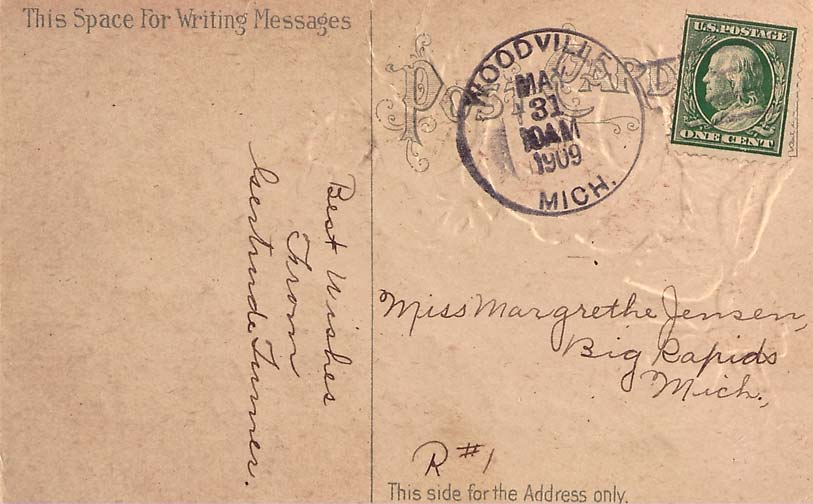 This Space For Writing Messages
Post Card
WOODVILLE
MAY
31
10AM
1909
MICH.
U.S. POSTAGE
ONE CENT
Best Wishes
From
Gertrude Turner.
Miss Margrethe Jensen,
Big Rapids
Mich.,
R#1
This side for the Address only.